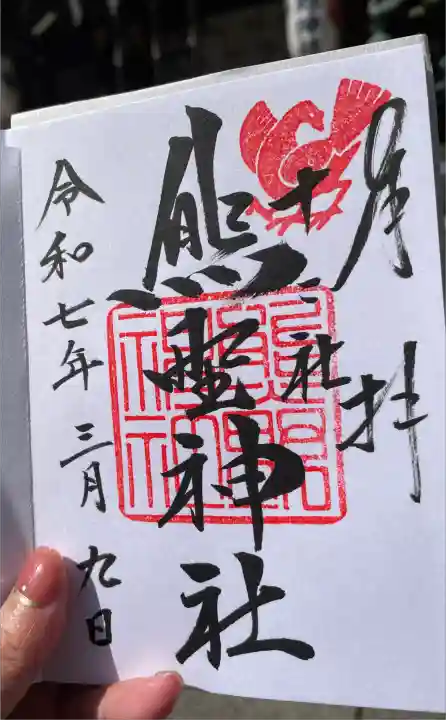 奉拝
十二社
熊野神社
令和七年 三月 九日